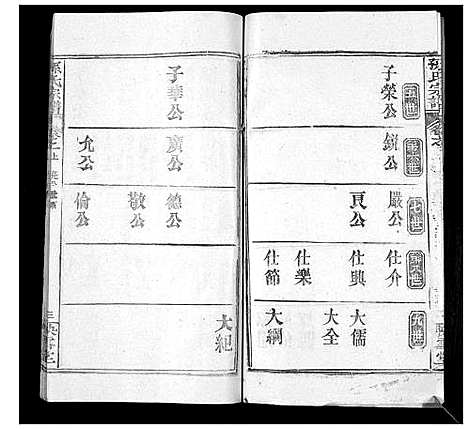 孫氏宗譜
五世
子榮公
子華公
第六世
銳公
廣公
允公
七世
嚴公
貢公
德公
敬公
倫公
第八世
仕介
仕興
仕樂
仕節
九世
大儒
大全
大綱
大紀
孫氏宗譜
卷之上
三